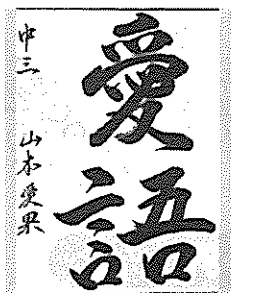 愛語
中三 山本愛果